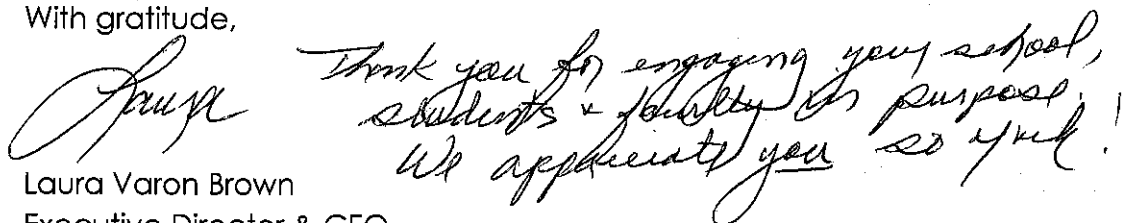 With gratitude,
Laura
Thank you for engaging your school,
students + faculty in purpose.
We appreciate you so much!
Laura Varon Brown
Executive Director & CEO